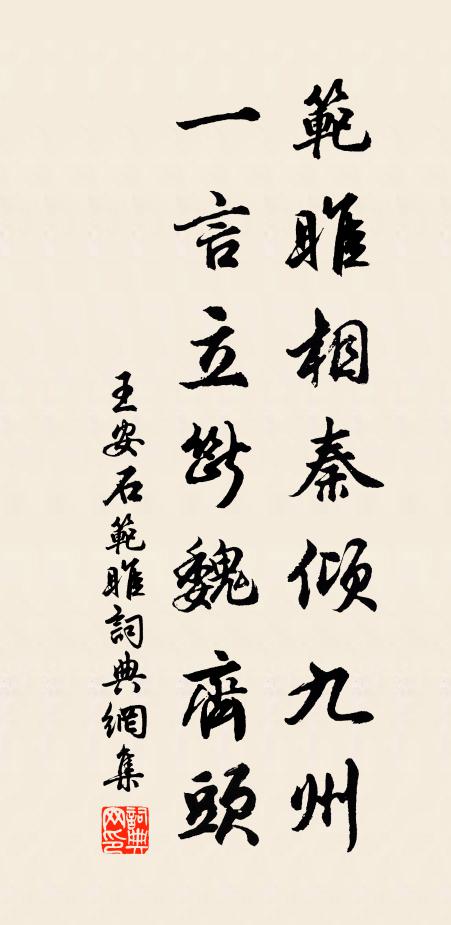 範雎相秦傾九州
一言立斷魏齊頭
王安石範雎詞典網集
詞典
網印